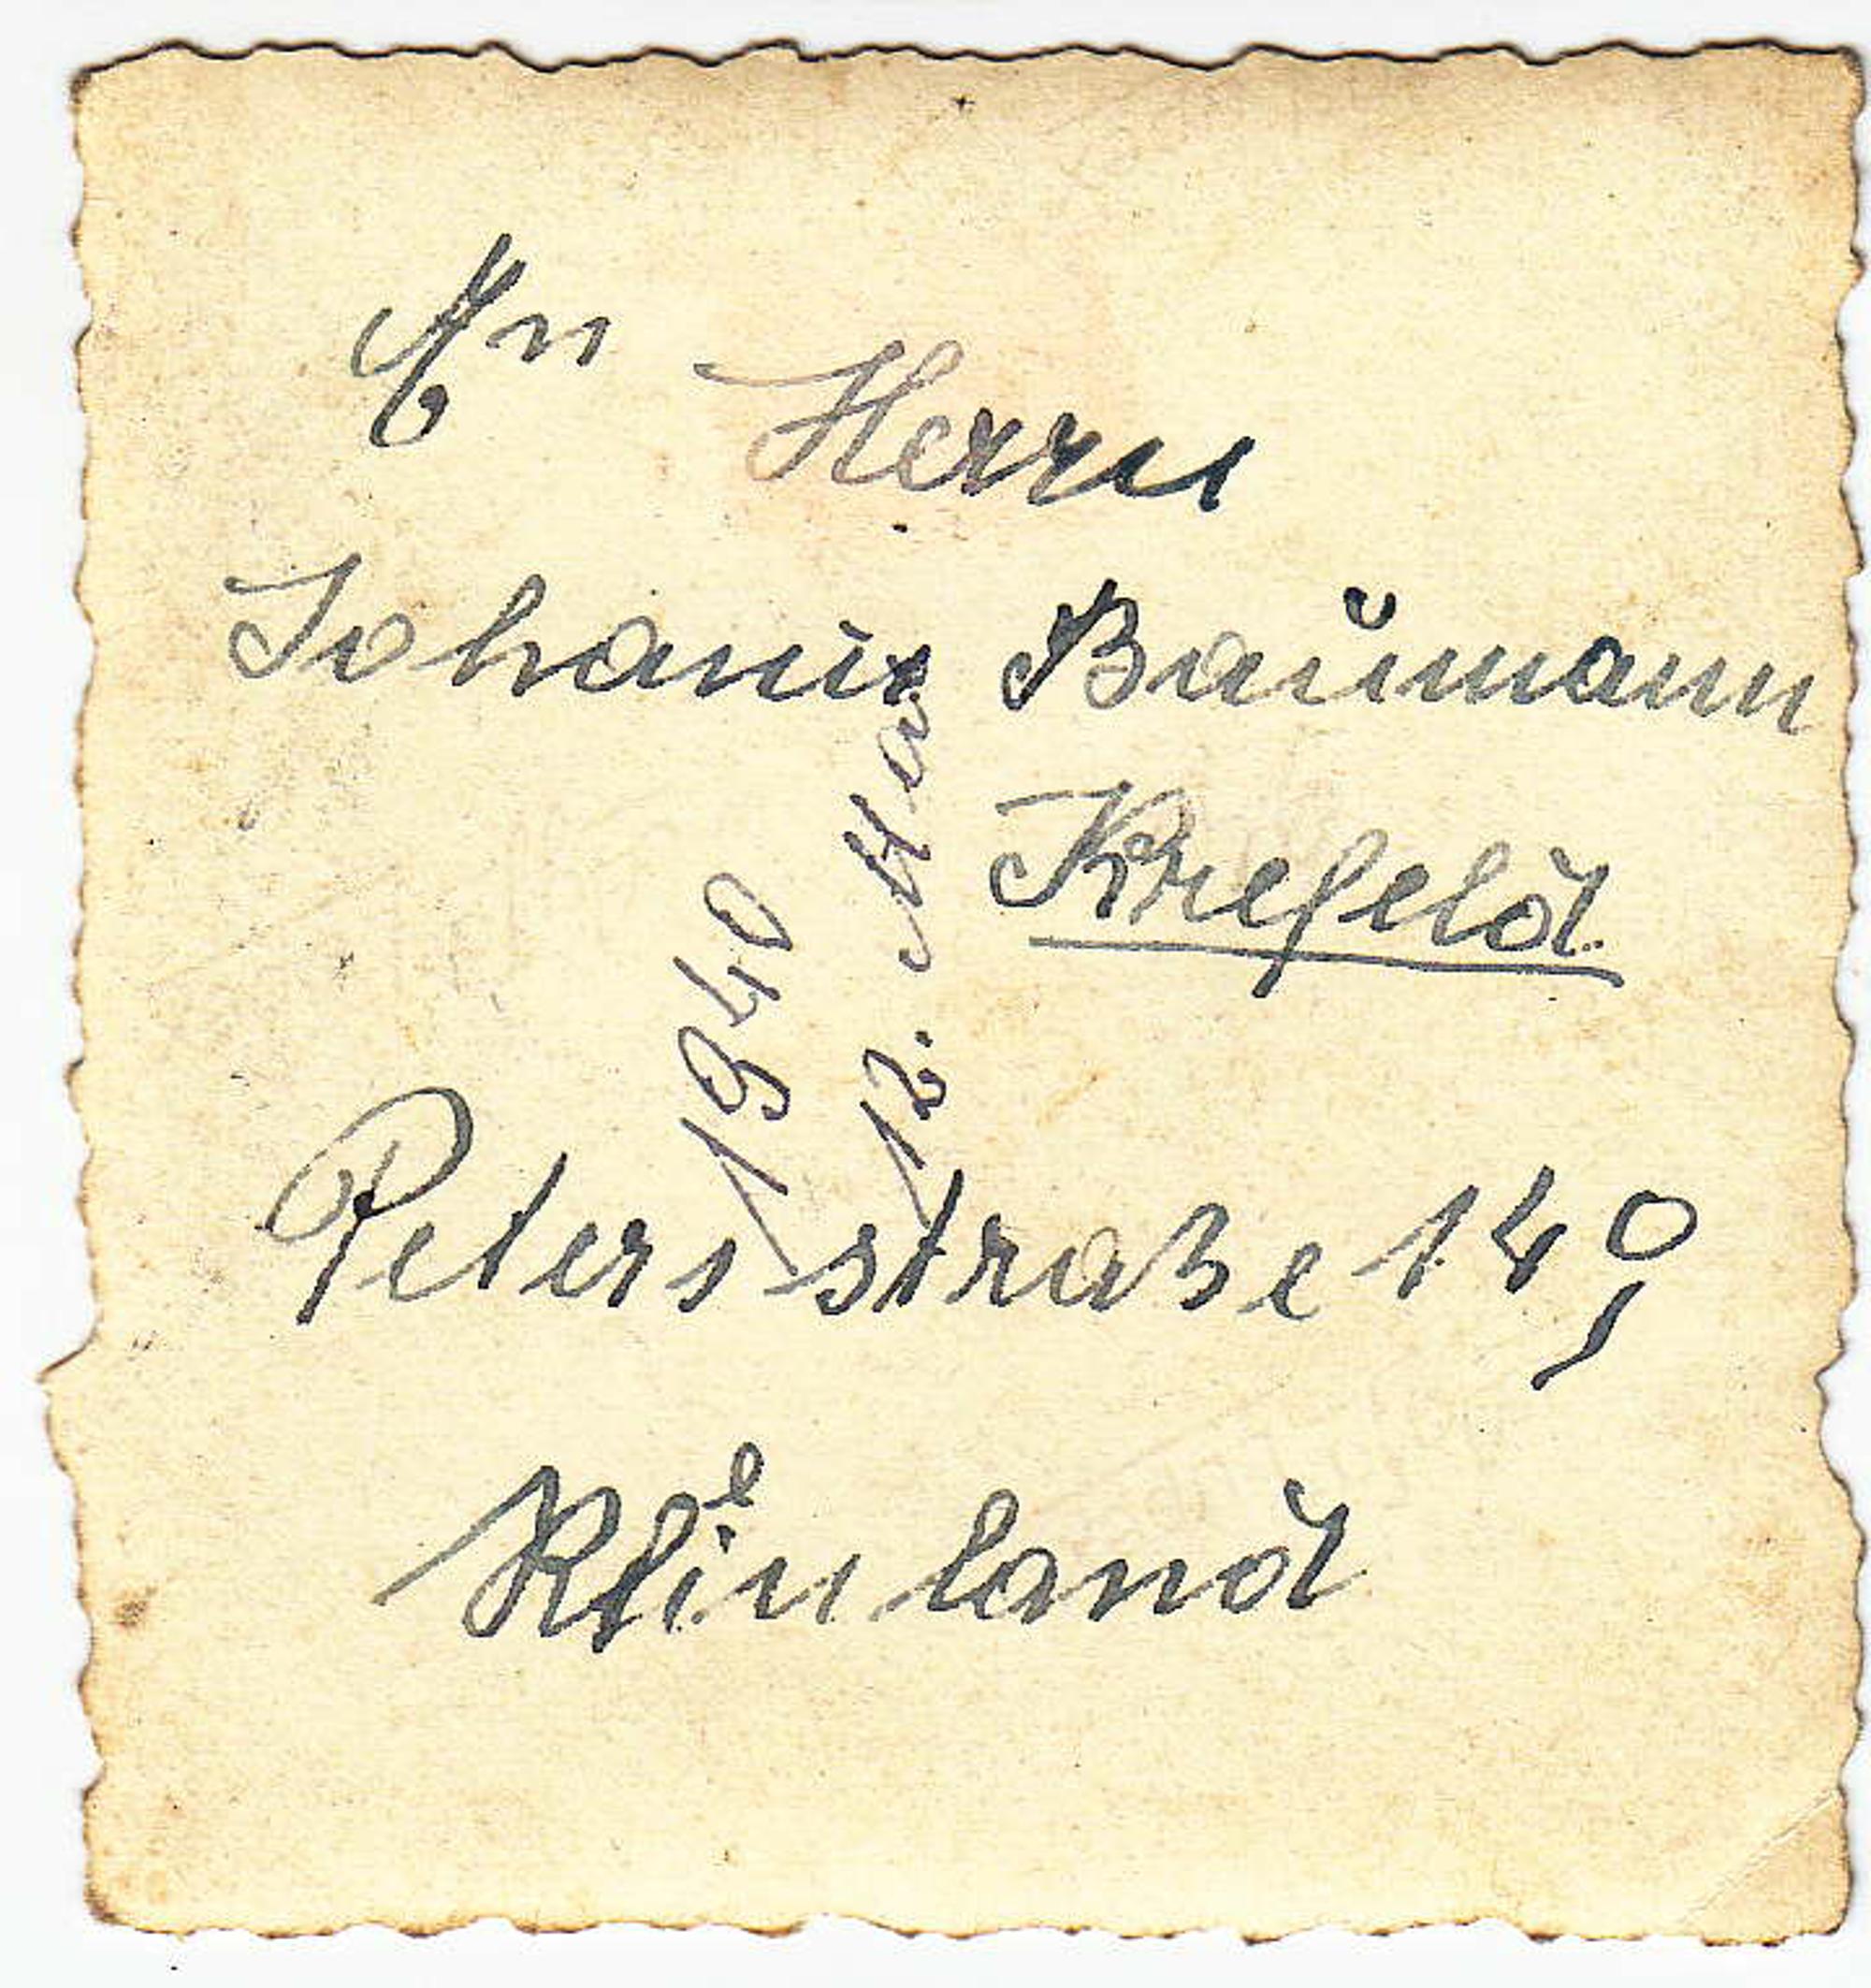 An
Herrn
Johann Baumann
Krefeld
Petersstraße 149
Rheinland
1940
12. Mai